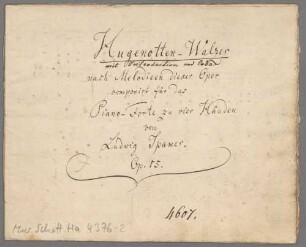 Hugenotten-Walzer
mit Introduction und Coda
nach Melodieen dieser Oper
componirt für das
Piano-Forte zu vier Händen
von
Ludwig
Op. 15.
4607.
Mus. Schott. Ha 4376-2